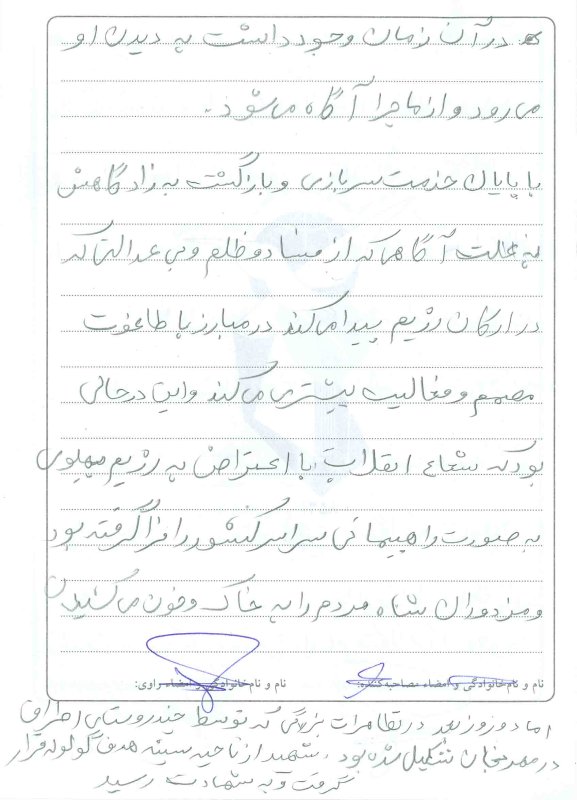 که در آن زمان وجود داشت به دیدن او
می رود و از ماجرا آگاه می شود .
با پایان خدمت سربازی و بازگشت به زادگاهش
به علت آگاهی که از فساد و ظلم و بی عدالتی که
در ارکان رژیم پیدا می کند در مبارز با طاغوت
مصمم و فعالیت بیشتری می کند و این در حالی
بود که شعاع انقلاب با اعتراض به رژیم پهلوی
به صورت راهپیمائی سراسر کشور را فرا گرفته بود
و مزدوران شاه مردم را به خاک و خون می کشیدن
نام و نام خانوادگی و امضاء مصاحبه کننده:
نام و نام خانوادگی و امضاء راوی:
اما دو روز بعد در تظاهرات بزرگی که توسط چند روستای اطراف
در مهرنجان تشکیل شده بود ، شهید از ناحیه سینه هدف گلوله قرار
گرفت و به شهادت رسید